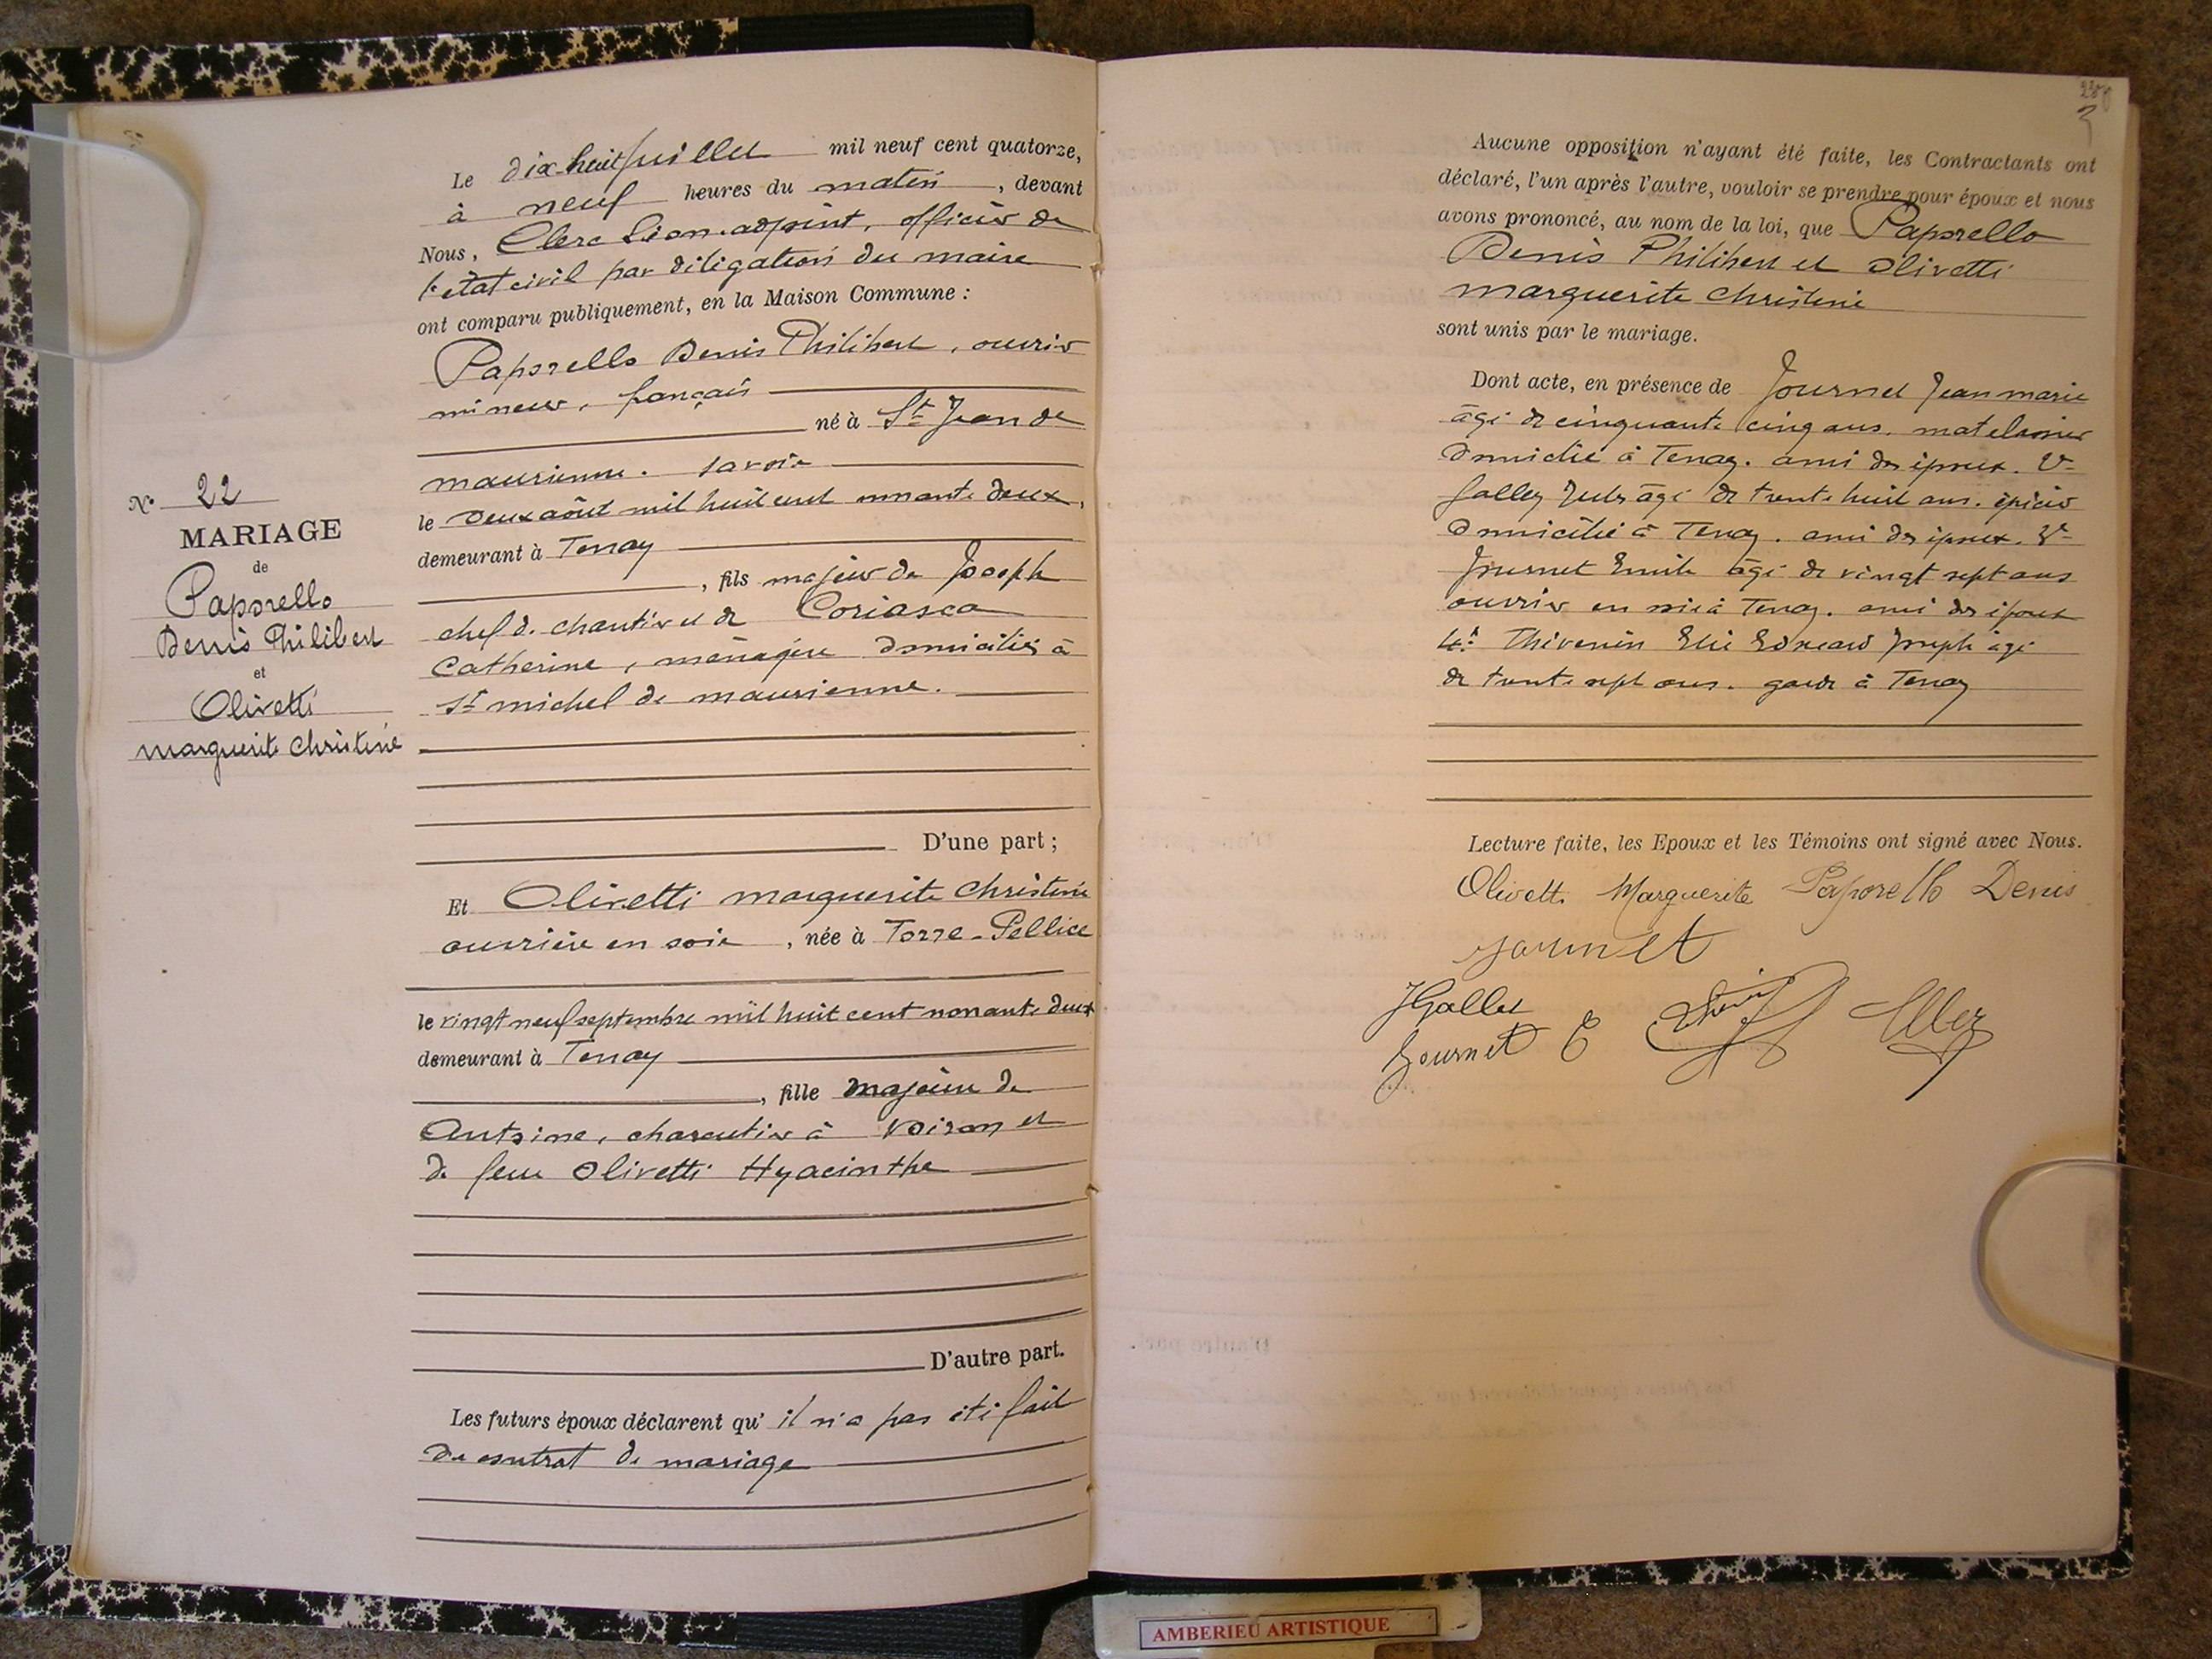 N° 22
MARIAGE
de
Paporello
Denis Philibert
et
Olivetti
marguerite Christine
Le dix-huit juillet mil neuf cent quatorze,
à neuf heures du matin, devant
Nous, Clerc Léon adjoint, officier de
l'état civil par délégation du maire
ont comparu publiquement, en la Maison Commune :
Paporello Denis Philibert, ouvrier
mineur, français
né à St Jean de
maurienne. Savoie
le deux août mil huit cent nonante deux,
demeurant à Tenay
, fils majeur de Joseph
chef de chantier et de Coriasca
Catherine, ménagère domiciliés à
St michel de maurienne.
D'une part ;
Et Olivetti marguerite Christine
ouvrière en soie, née à Torre-Pellice
le vingt neuf septembre mil huit cent nonante deux
demeurant à Tenay
, fille majeure de
Antoine, charcutier à Voiron et
de feue Olivetti Hyacinthe
D'autre part.
Les futurs époux déclarent qu'il n'a pas été fait
de contrat de mariage
Aucune opposition n'ayant été faite, les Contractants ont
déclaré, l'un après l'autre, vouloir se prendre pour époux et nous
avons prononcé, au nom de la loi, que Paporello
Denis Philibert et Olivetti
marguerite Christine
sont unis par le mariage.
Dont acte, en présence de Journet Jean marie
âgé de cinquante cinq ans. matelassier
domicilié à Tenay. ami des époux.
Galley Jules âgé de trente huit ans. épicier
domicilié à Tenay. ami des époux.
Journet Emile âgé de vingt sept ans
ouvrier en soie à Tenay. ami des époux
4° Thévenin Elie Edouard Joseph âgé
de trente sept ans. garde à Tenay
Lecture faite, les Epoux et les Témoins ont signé avec Nous.
Olivetti Marguerite Paporello Denis
Journet
JGalley
Journet E
AMBERIEU ARTISTIQUE